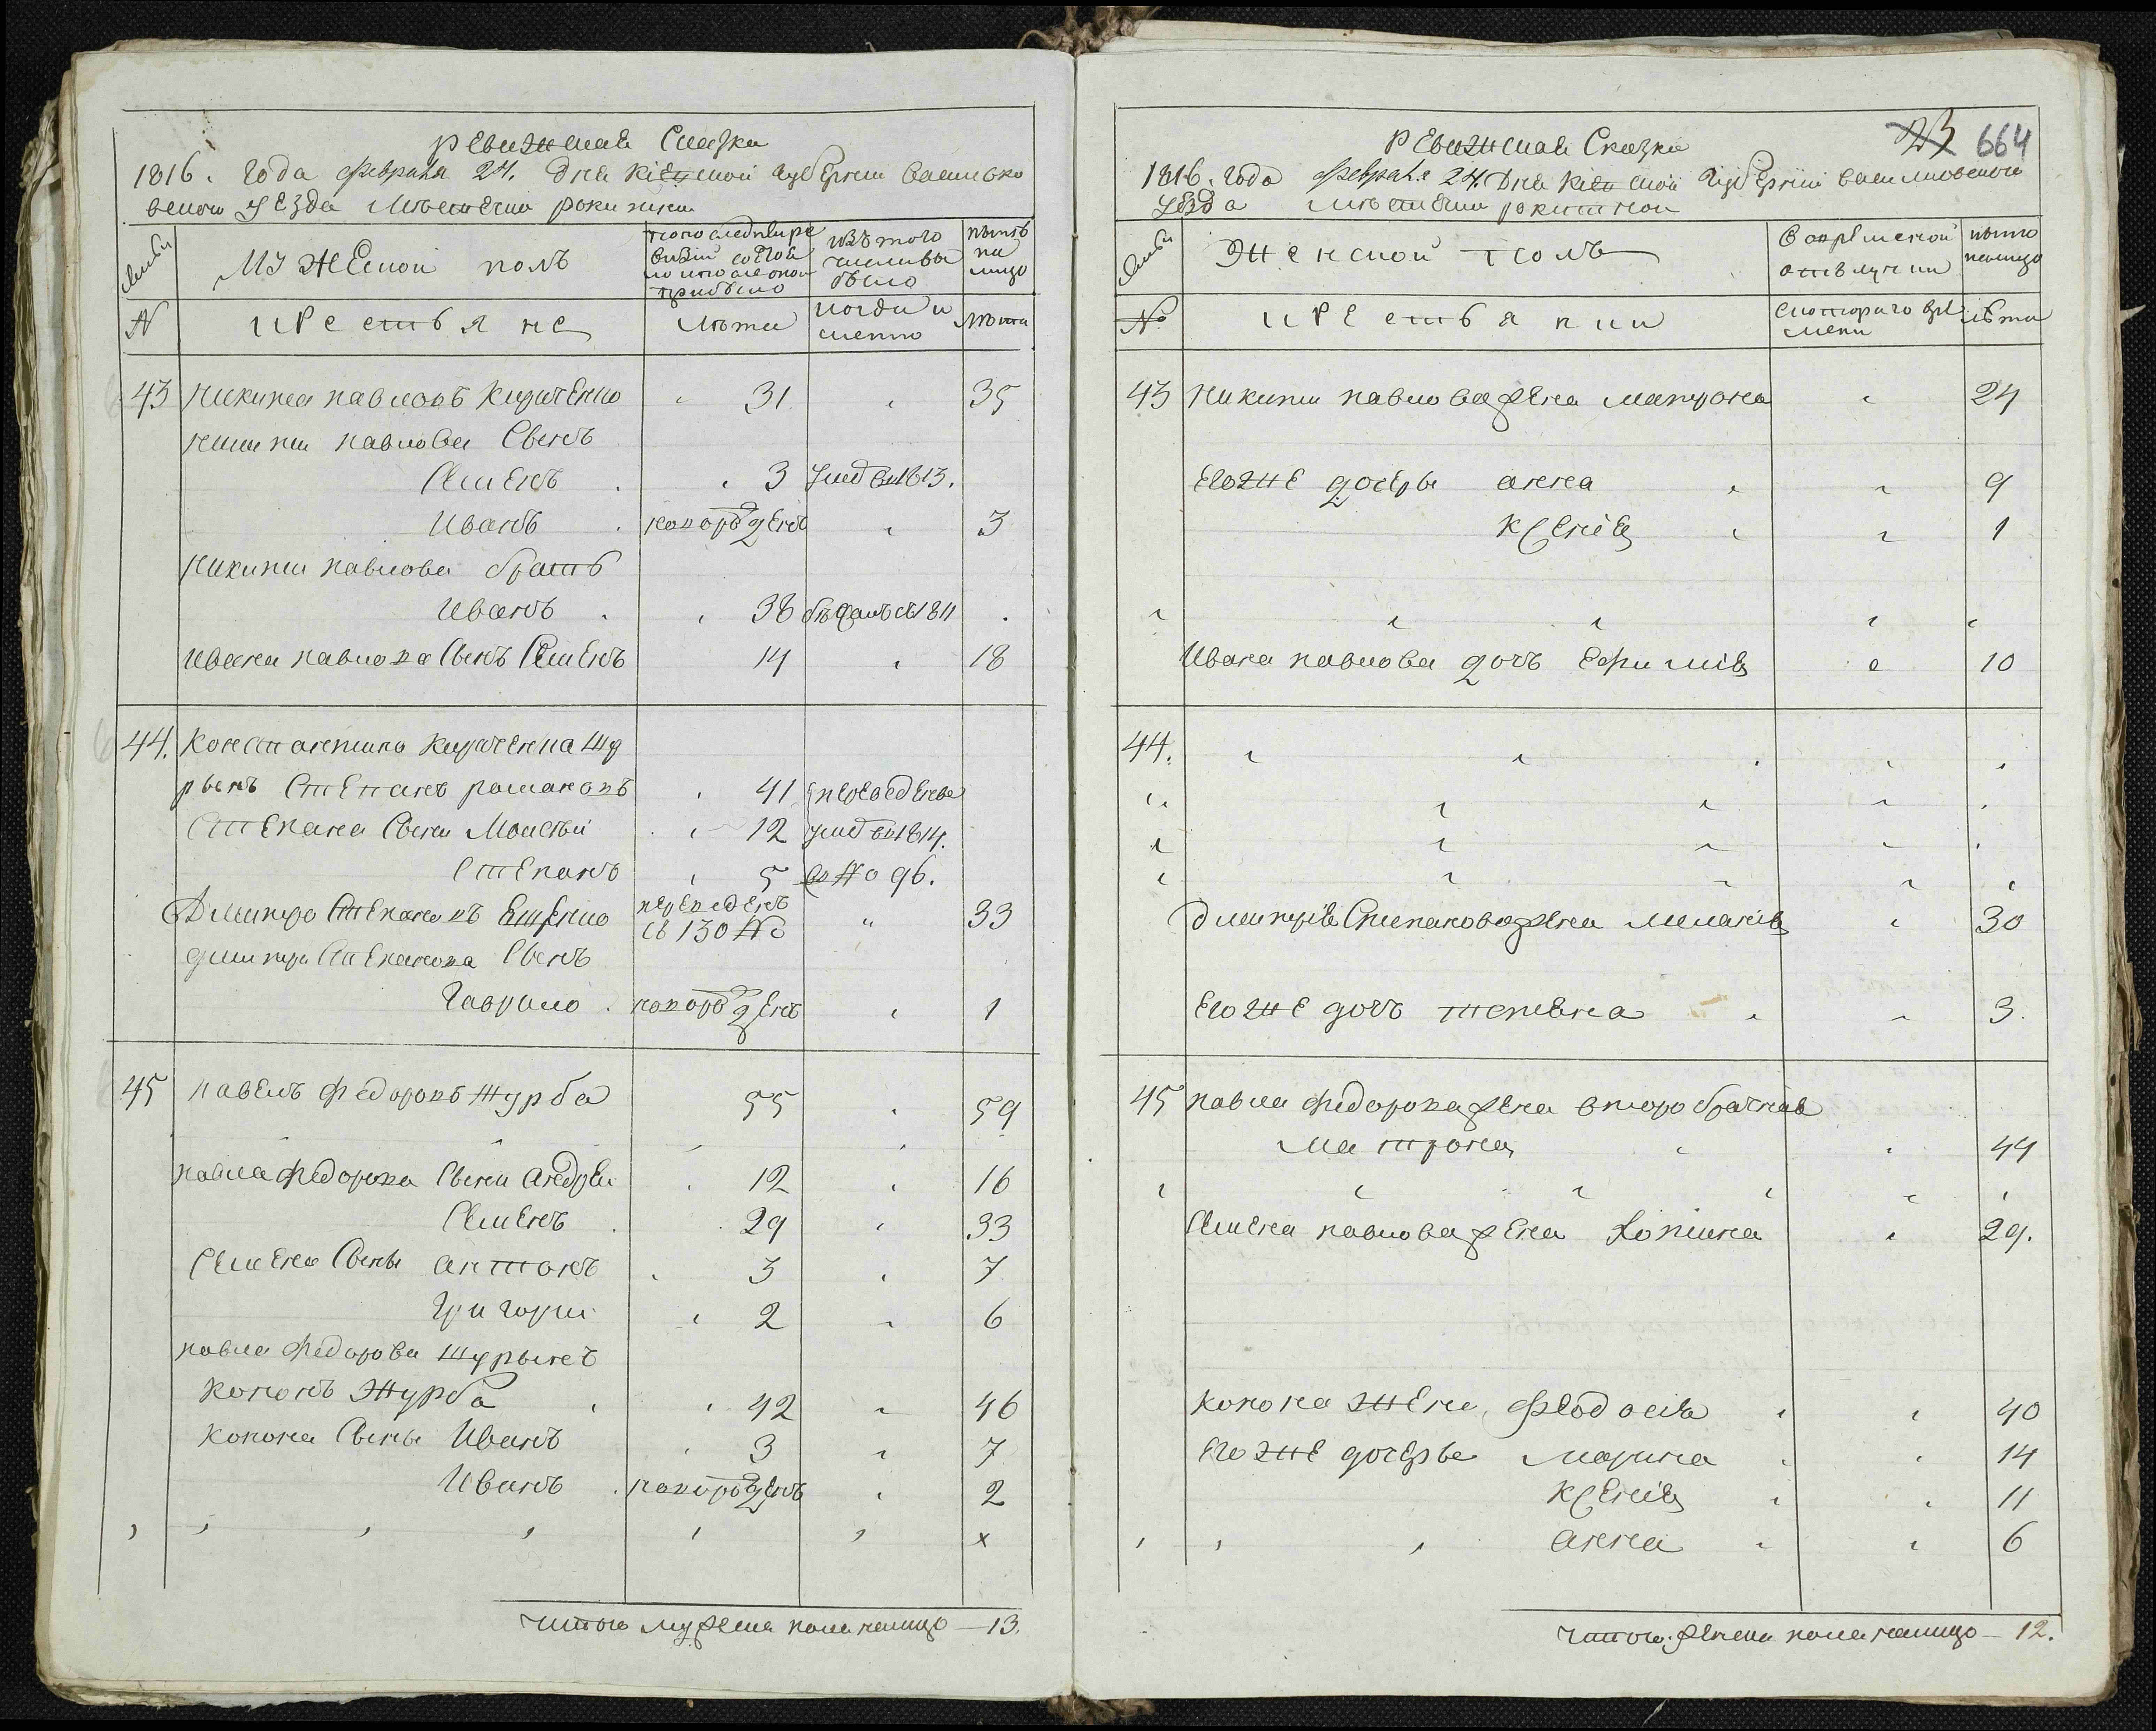 ревижская Сказка
1816. года февраля 24. дня кіевской губернии василько
вского уезда местечка рокитни
мужеской полъ
по последней ре
визии состоя
ло и после оной
прибыло
изъ того
числа вы
было
ныне
на
лицо
№
крестьяне
лета
когда и
лета
43 никита павловъ кираченко 31 35
никиты павлова Сынъ
Семенъ 3 умре в 1813.
Иванъ новорожденъ 3
никиты павлова братъ
Иванъ 38 1811
ивана павлова Сынъ Семенъ 14 18
44. константина кираченка шу
рынъ Степанъ романовъ 41 переведены
Степана Сыны Моисей 12 умре в 1814.
Степанъ 5 в № 96.
Дмитро Степановъ переведенъ
съ 130 № 33
дмитра Степанова Сынъ
Гаврило новорожденъ 1
45 павелъ федоровъ журба 55 59
павла федорова Сыны андрей 12 16
Семенъ 29 33
Семена Сыны антонъ 3 7
григорий 2 6
павла федорова шурынъ
кононъ журба 42 46
конона Сыны Иванъ 3 7
Иванъ новорожденъ 2
х
итого мужеска пола налицо — 13.
664
ревижская Сказка
1816. года февраля 24. дня кіевской губерніи васильковского
уезда местечка рокитной
женской полъ
во временной
отлучки
ныне
налицо
№
крестьянки
с которого вре
мени
лета
43 никиты павлова жена матрона 24
его же дочеры анна 9
ксенія 1
Ивана павлова дочъ ефимія 10
44.
дмитрія Степанова жена меланія 30
его же дочъ тетяна 3.
45 павла федорова жена второбрачная
матрона 44
Семена павлова жена 29.
конона жена феодосія 40
его же дочеры марина 14
ксенія 11
анна 6
итого: женска пола налицо — 12.